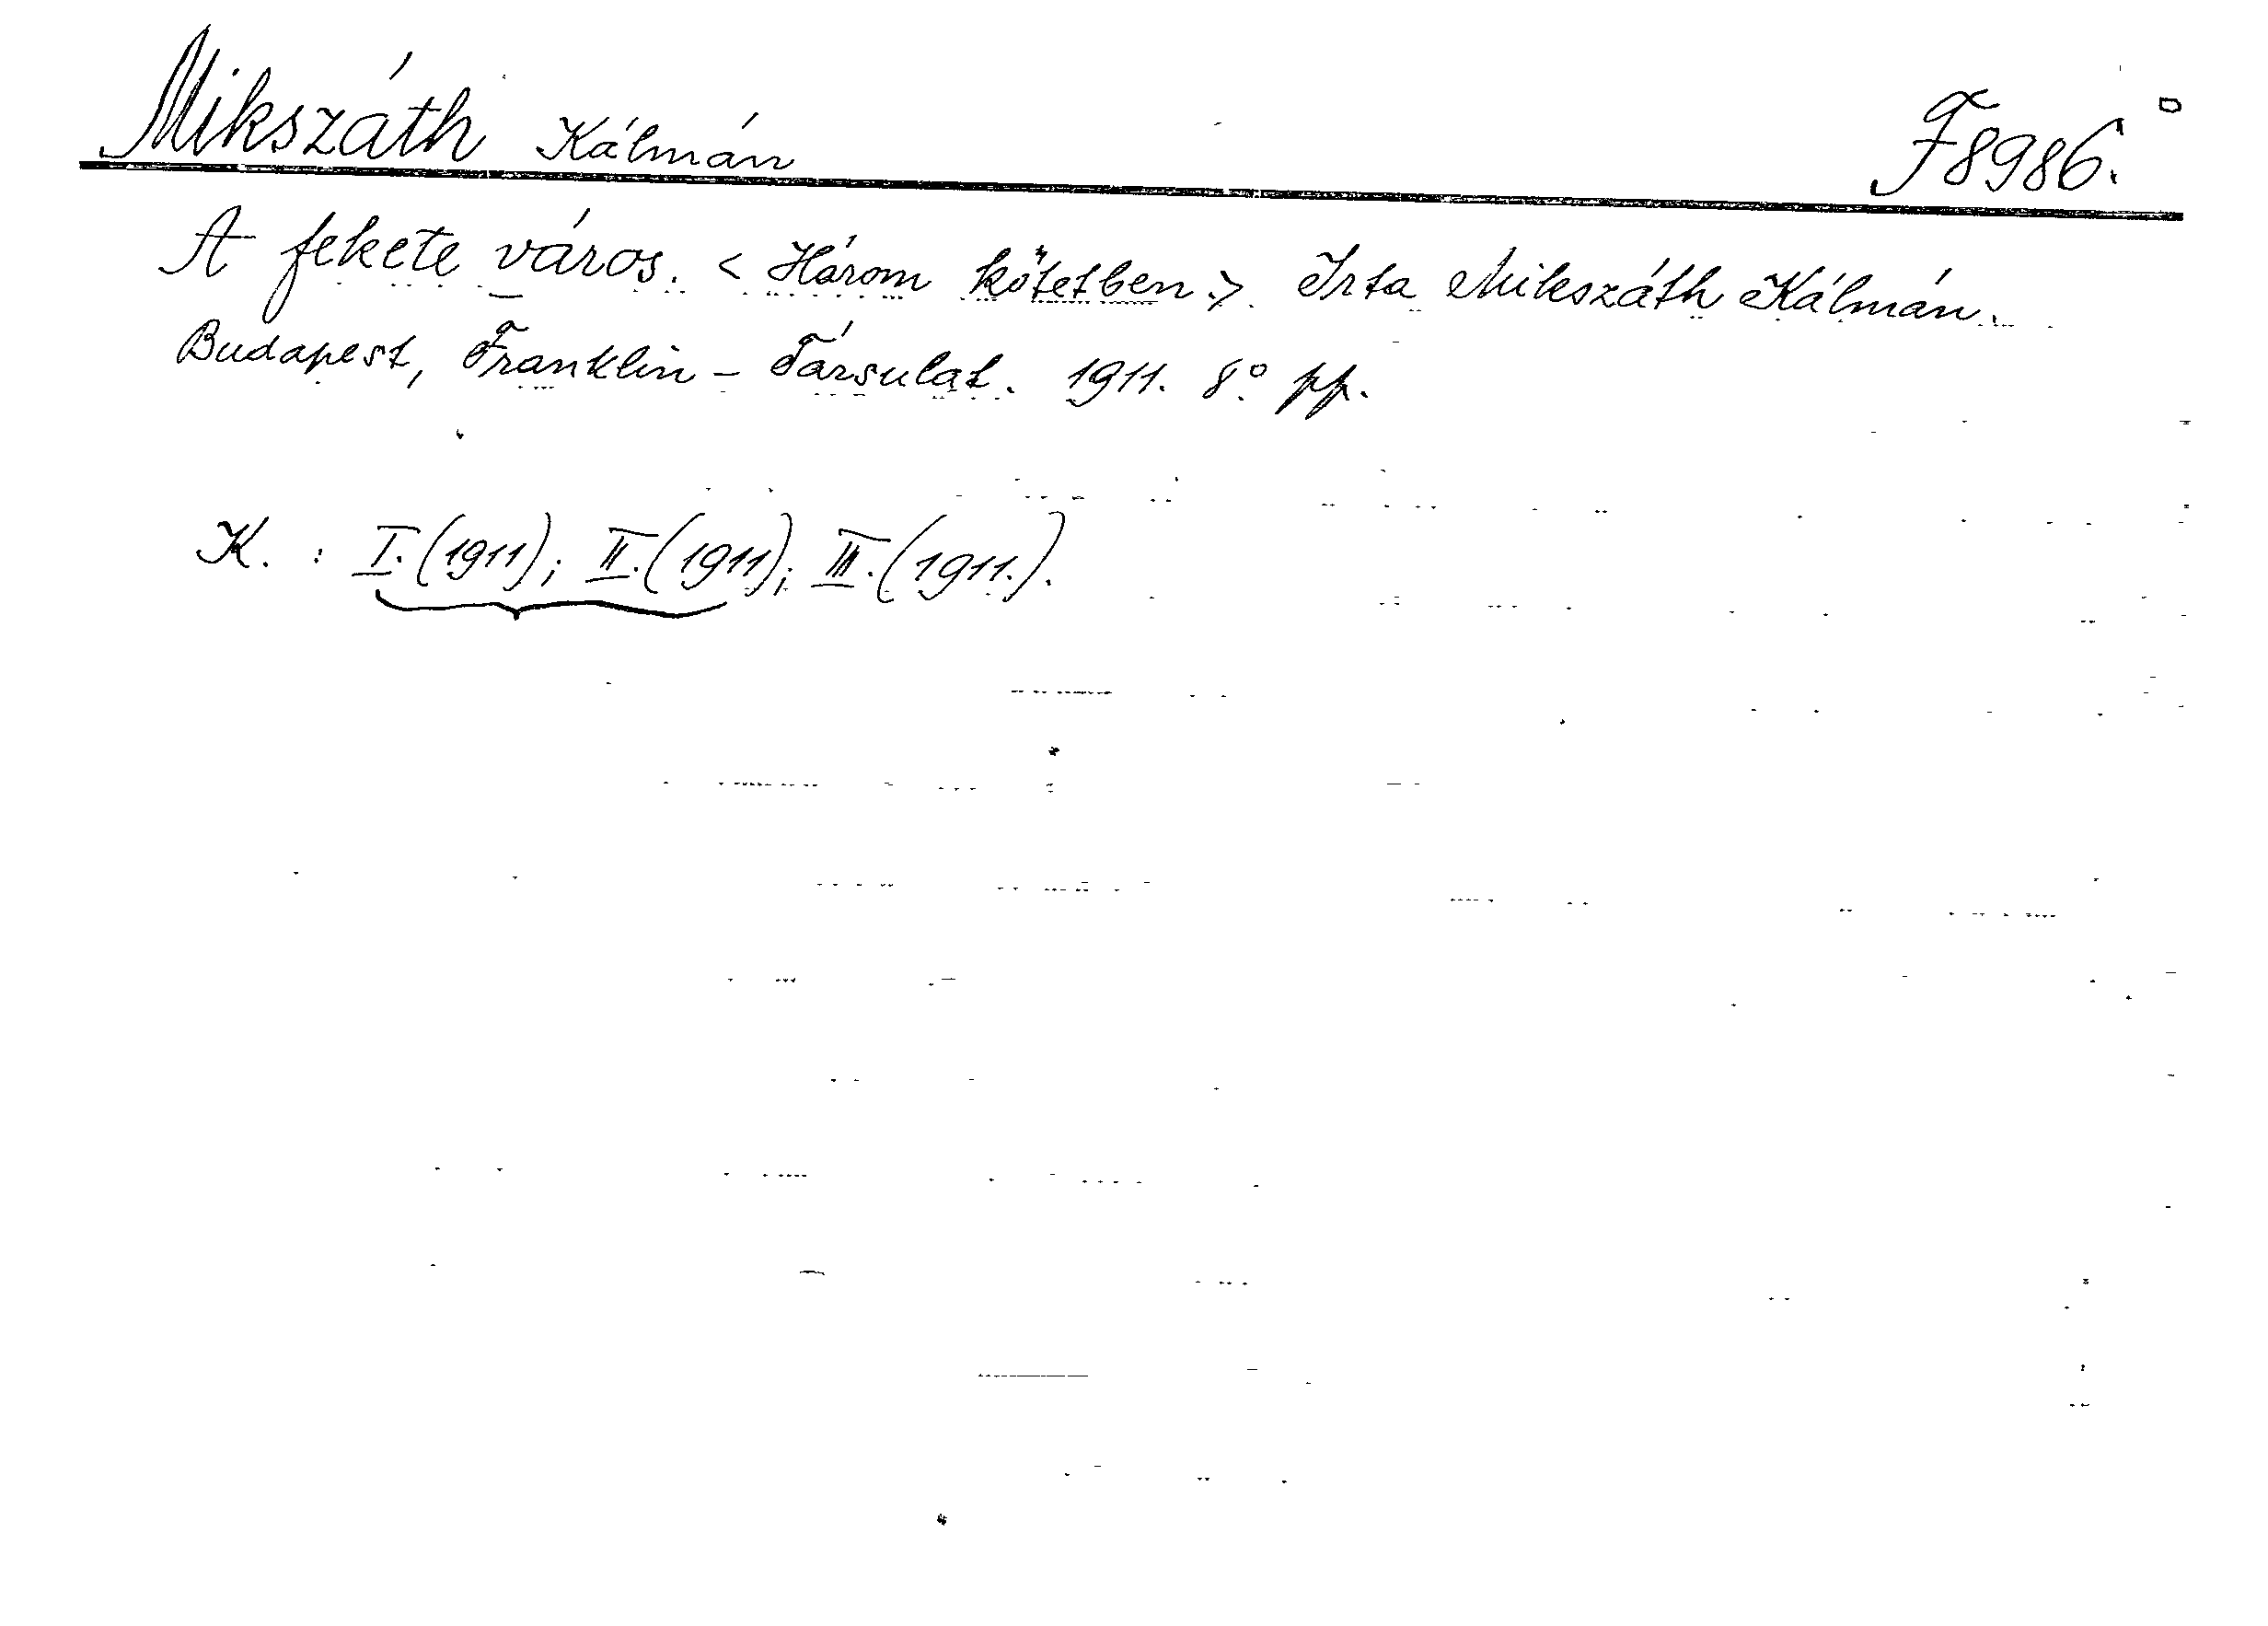 Mikszáth Kálmán F8986.
A fekete város. < Három kötetben >. Irta Mikszáth Kálmán.
Budapest, Franklin - Társulat. 1911. 8.° pp.
K. : I. (1911); II. (1911); III. (1911.).